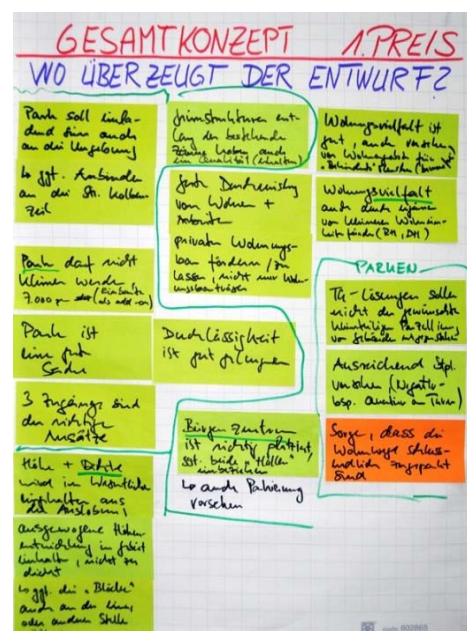 GESAMTKONZEPT 1. PREIS
WO ÜBERZEUGT DER ENTWURF?
Park soll einla-
dend sein auch
an die Umgebung
an die Str.
Park darf nicht
kleiner werden
7.000 qm
Park ist
eine gute
Sache
3 Zugänge sind
der richtige
Ansatz
Höhe + Dichte
wird im Wesentlichen
eingehalten aus
der Auslobung
ausgewogene Höhen-
entwicklung im Gebiet
einhalten, nicht zu
dicht
ggf. die "Blöcke"
auch an der einen
oder anderen Stelle
Grünstrukturen ent-
lang der bestehenden
haben auch
eine Qualität (erhalten)
gute Durchmischung
von Wohnen +
privaten Wohnungs-
bau fördern / zu
lassen, nicht nur Woh-
nungsbauträger
Durchlässigkeit
ist gut gelungen
Bürgerzentrum
ist richtig platziert,
ggf. beide "Höfe"
einbeziehen
auch Parkierung
vorsehen
Wohnungsvielfalt ist
gut, auch vorsehen
von
Wohnungsvielfalt
auch durch
von kleineren Wohnein-
heiten fördern (RH, DH)
PARKEN
TG-Lösungen sollen
nicht der gewünschten
kleinteiligen Parzellierung
von Gebäuden entgegenstehen
Ausreichend Stpl.
vorsehen (Negativ-
bsp. Quartier am Turm)
Sorge, dass die
Wohnwege schluss-
endlich zugeparkt
sind